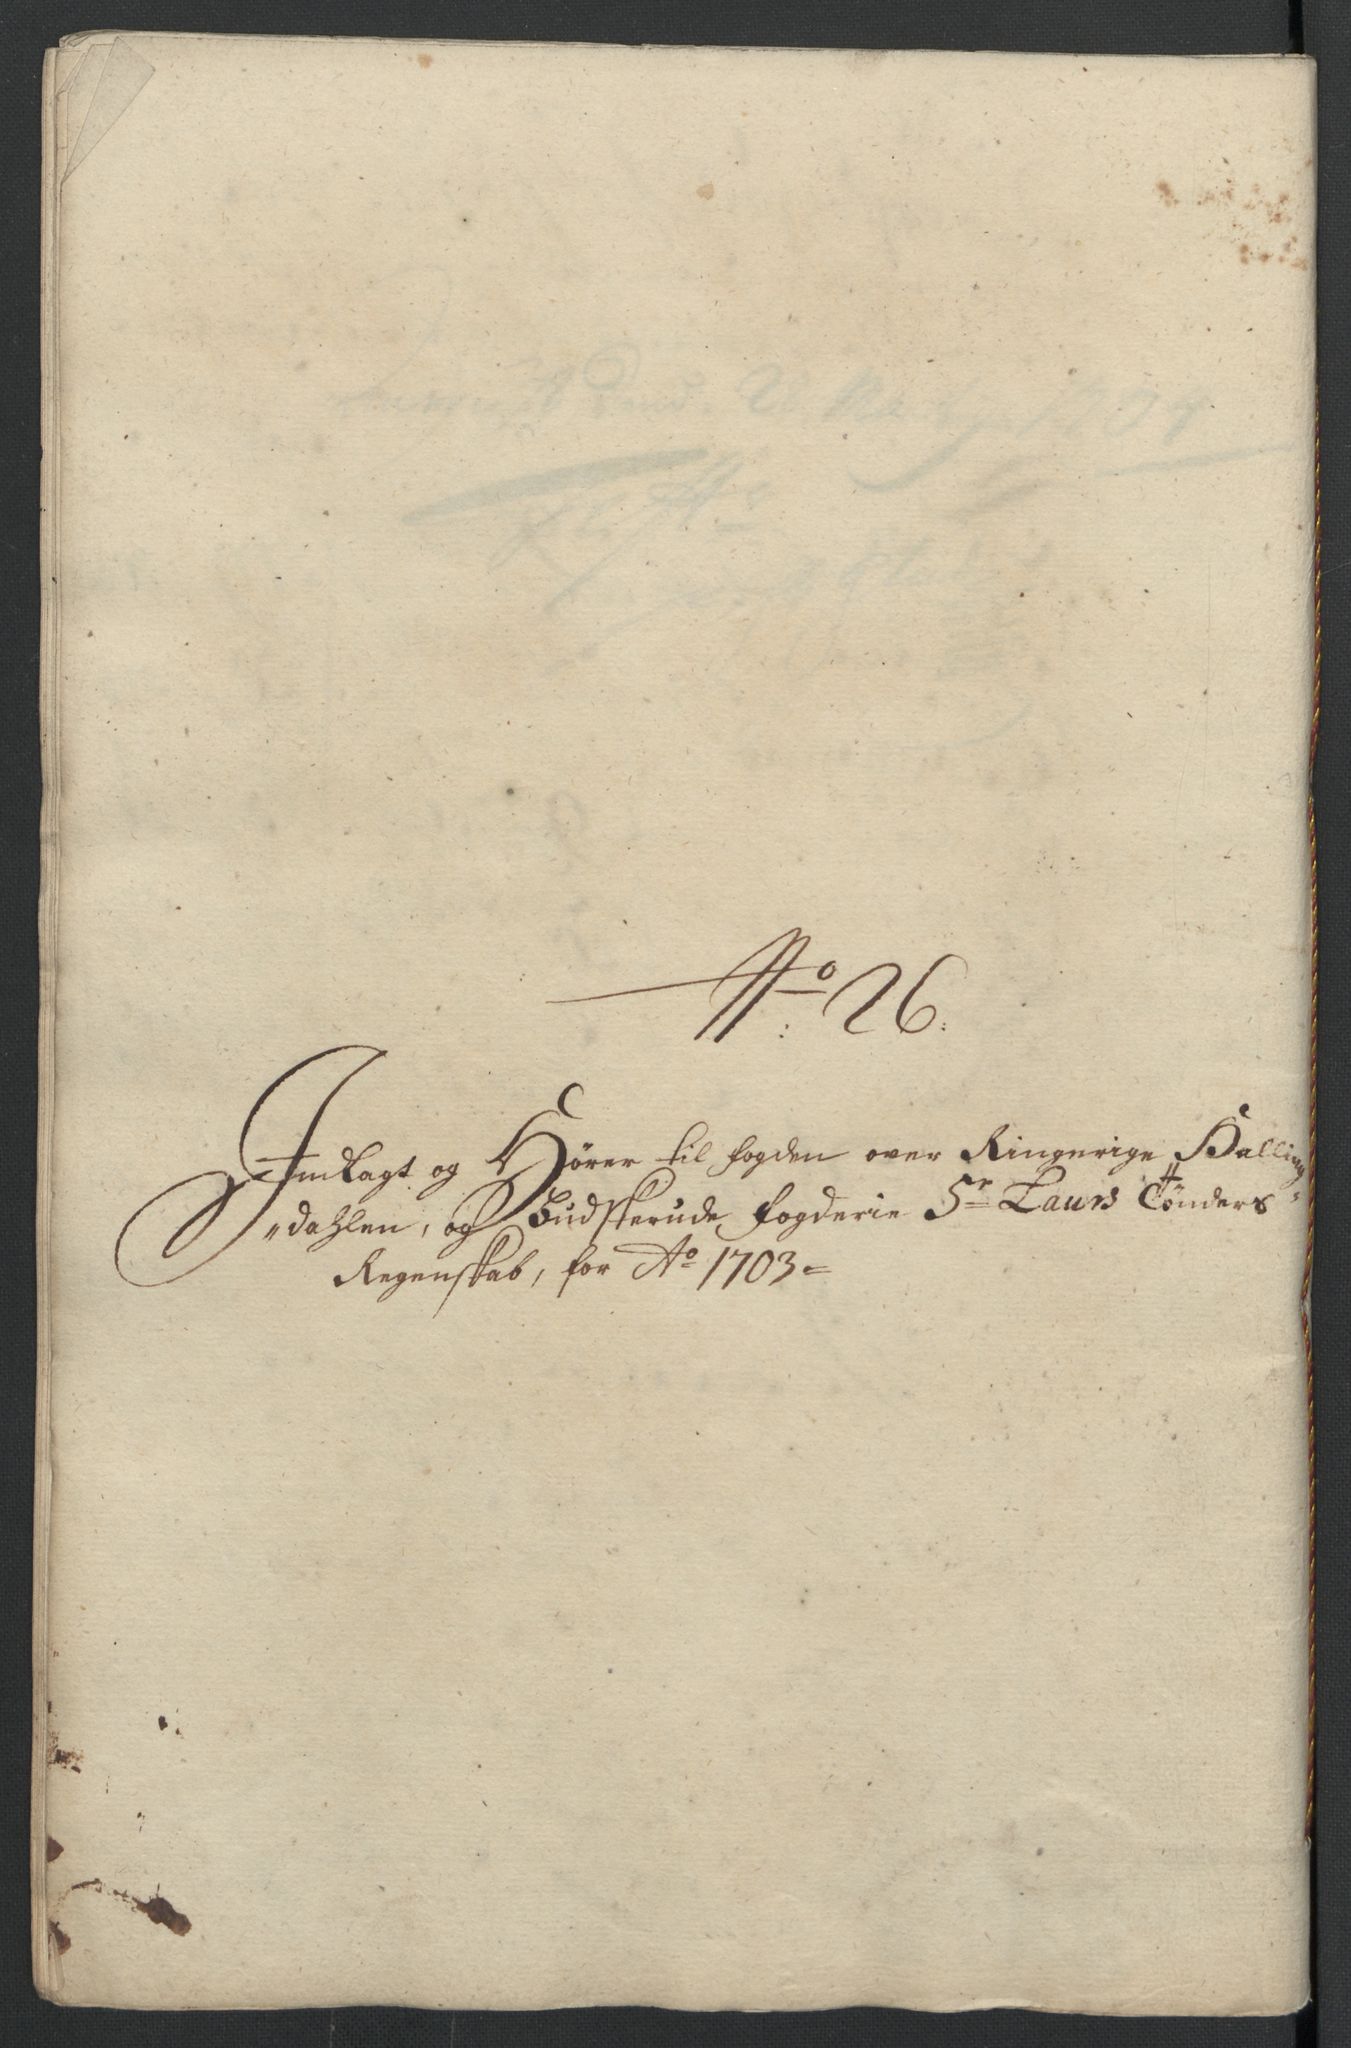 No 26.
Indlagt og Hörer til fogden over Ringerige Halling
dahlen, og Budskerude fogderie Sr Laurs Tönders
Regenskab, for Ao 1703